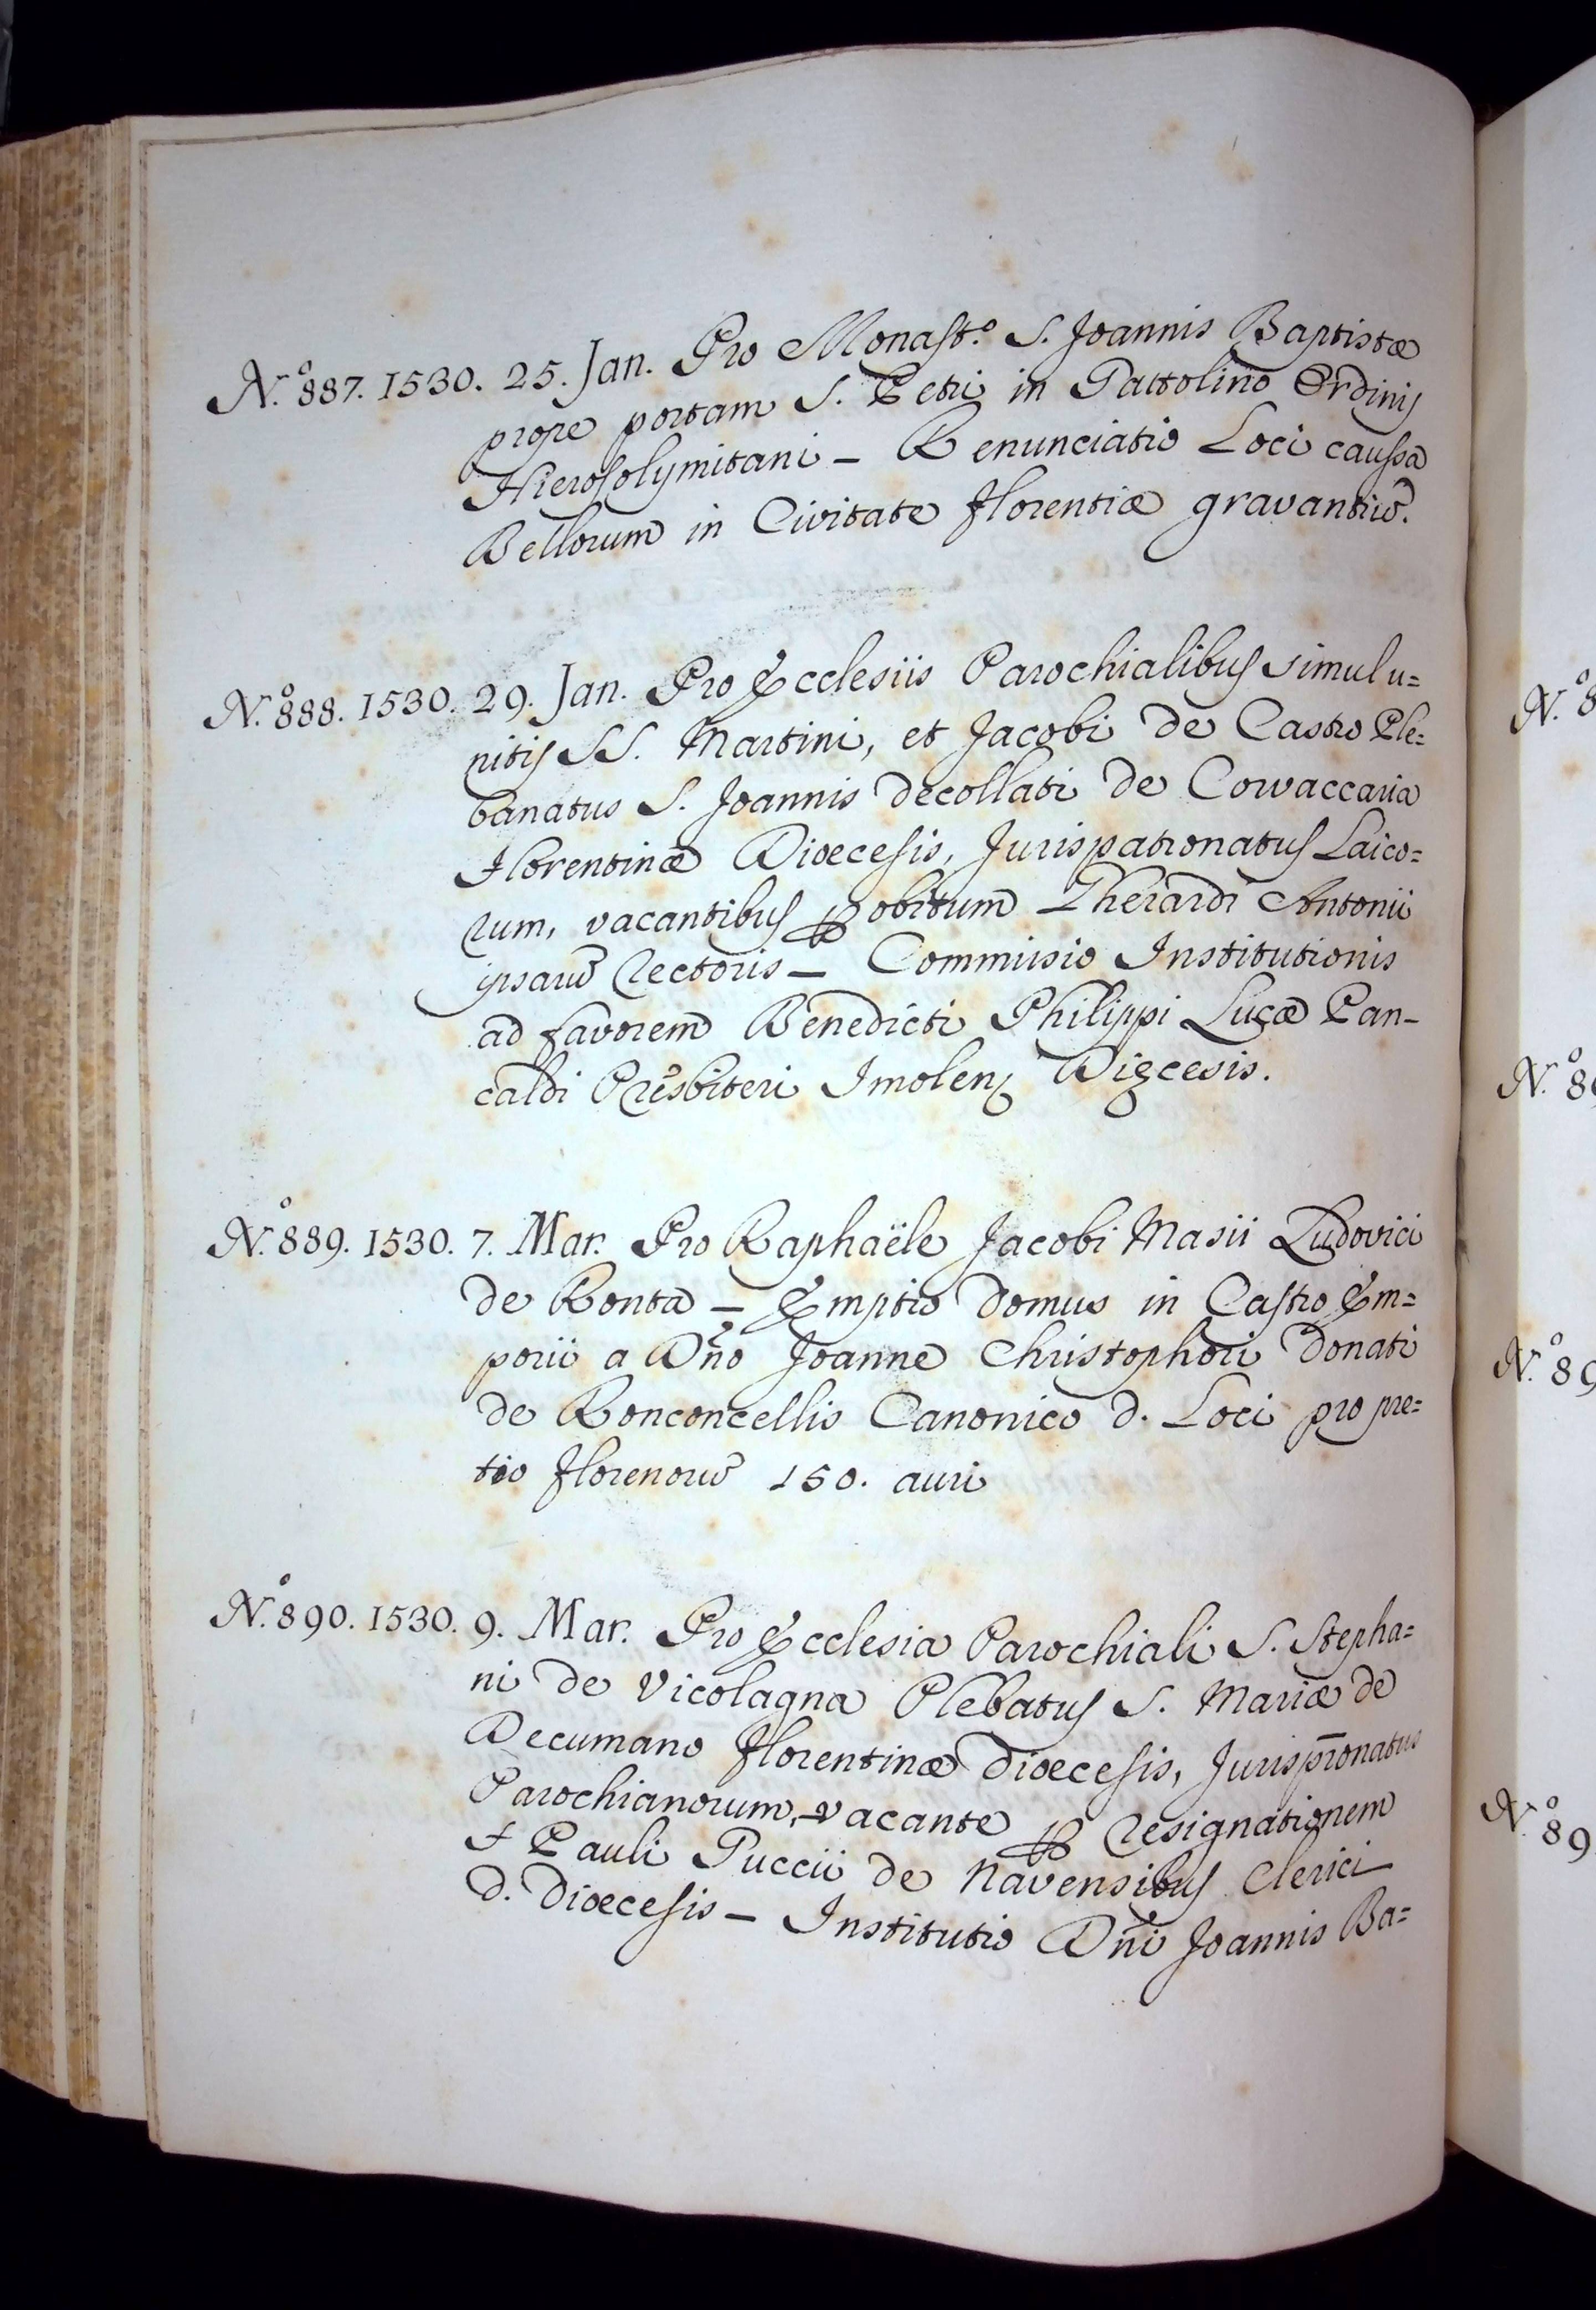 N.º 887. 1530. 25. Jan. Pro Monast.º S. Joannis Baptistæ
prope portam S. Petri in Gattolino Ordinis
Hierosolymitani – Renunciatio Loci caussa
Bellorum in Civitate Florentiæ gravantiũ.
N.º 888. 1530. 29. Jan. Pro Ecclesiis Parochialibus simul u=
nitis SS. Martini, et Jacobi de Castro Ple=
banatus S. Joannis decollati de Corvaccaria
Florentinæ Diœcesis, Jurispatronatus Laico=
rum, vacantibus ꝑ obitum Gherardi Antonii
ipsarũ Rectoris – Commissio Institutionis
ad favorem Benedicti Philippi Lucæ Pan-
caldi Presbiteri Imolen. Diœcesis.
N.º 889. 1530. 7. Mar. Pro Raphaële Jacobi Masii Ludovici
de Ronta – Emptio domus in Castro Em=
porii a Dño Joanne Christophori Donati
de Ronconcellis Canonico d. Loci pro pre=
tio Florenorũ 150. auri
N.º 890. 1530. 9. Mar. Pro Ecclesia Parochiali S. Stepha=
ni de Vicolagna Plebatus S. Mariæ de
Decumano Florentinæ Diœcesis, Jurisp̄ronatus
Parochianorum, vacante ꝑ Resignationem
F Pauli Puccii de Navensibus Clerici
d. Diœcesis – Institutio Dñi Joannis Ba=
N.º 8
N.º 89
N.º 89
N.º 89